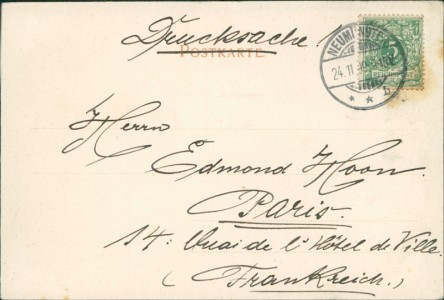 Drucksache
POSTKARTE
NEUMÜNSTER
24.11.
5
Herrn
Edmond Hoon.
Paris.
14: Quai de l'Hôtel de Ville.
(Frankreich.)